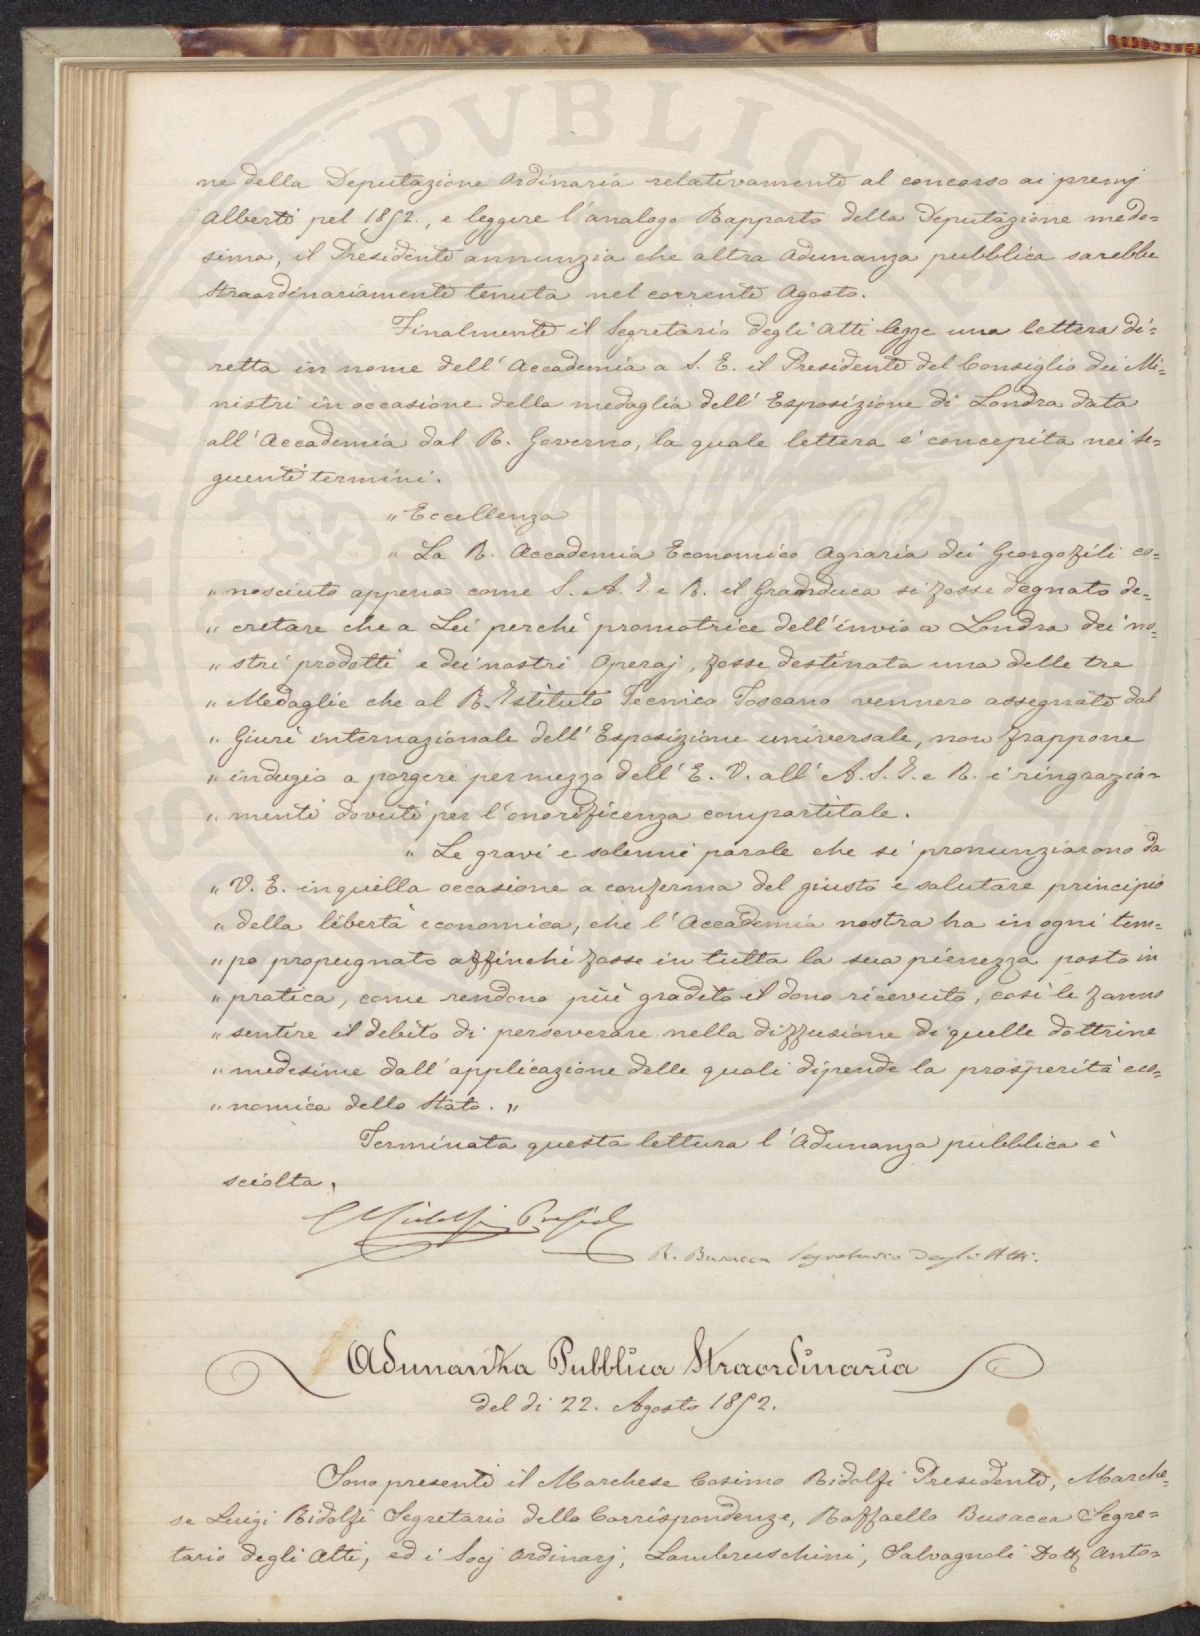 ne della Deputazione ordinaria relativamente al concorso ai premj
Alberti pel 1852., e leggere l'analogo Rapporto della Deputazione mede=
sima, il Presidente annunzia che altra Adunanza pubblica sarebbe
straordinariamente tenuta nel corrente Agosto.
Finalmente il Segretario degli Atti legge una lettera di=
retta in nome dell'Accademia a S. E. il Presidente del Consiglio dei Mi=
nistri in occasione della medaglia dell'Esposizione di Londra data
all'Accademia dal R. Governo, la quale lettera è concepita nei se=
guenti termini.
" Eccellenza
" La R. Accademia Economico Agraria dei Georgofili co=
" nosciuto appena come S. A. I. e R. il Granduca si fosse degnato de=
" cretare che a Lei perchè promotrice dell'invio a Londra dei no=
" stri prodotti e dei nostri Operaj, fosse destinata una delle tre
" Medaglie che al R. Istituto Tecnico Toscano vennero assegnate dal
" Giurì internazionale dell'Esposizione universale, non frappone
" indugio a porgere per mezzo dell'E. V. all'A. S. I. e R. i ringrazia=
" menti dovuti per l'onorificenza compartitale.
" Le gravi e solenni parole che si pronunziarono da
" V. E. in quella occasione a conferma del giusto e salutare principio
" della libertà economica, che l'Accademia nostra ha in ogni tem=
" po propugnato affinchè fosse in tutta la sua pienezza posto in
" pratica, come rendono più gradito il dono ricevuto, così le fanno
" sentire il debito di perseverare nella diffusione di quelle dottrine
" medesime dall'applicazione delle quali dipende la prosperità eco=
" nomica dello Stato. "
Terminata questa lettura l'Adunanza pubblica è
sciolta.
C Ridolfi Presid
R. Busacca Segretario degli Atti.
Adunanza Pubblica Straordinaria
del dì 22. Agosto 1852.
Sono presenti il Marchese Cosimo Ridolfi Presidente, Marche=
se Luigi Ridolfi Segretario delle Corrispondenze, Raffaello Busacca Segre=
tario degli Atti, ed i Socj ordinarj, Lambruschini, Salvagnoli Dott. Anto=